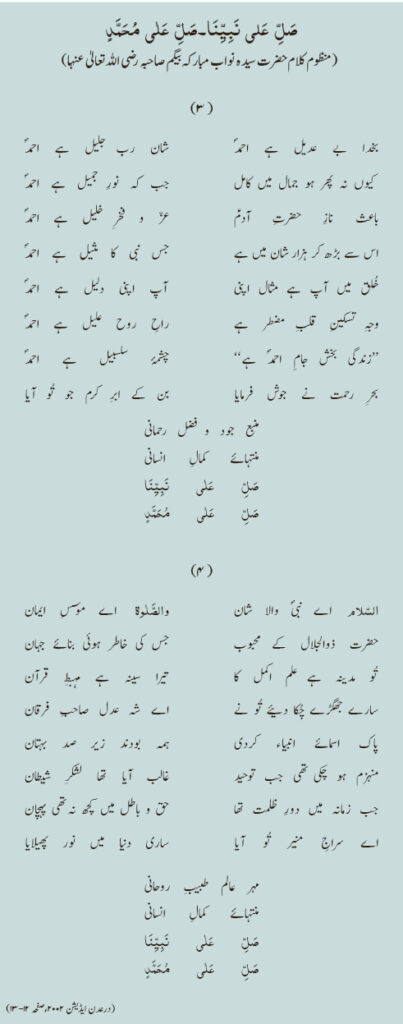 صَلِّ عَلٰی نَبِیِّنَا۔ صَلِّ عَلٰی مُحَمَّدٍ
(منظوم کلام حضرت سیدہ نواب مبارکہ بیگم صاحبہ رضی اللہ تعالیٰ عنہا)
(۳)
بخدا بے عدیل ہے احمدؐ شان رب جلیل ہے احمدؐ
کیوں نہ پھر ہو جمال میں کامل جب کہ نورِ جمیل ہے احمدؐ
باعث نازِ حضرتِ آدمؑ عزّ و فخرِ خلیل ہے احمدؐ
اس سے بڑھ کر ہزار شان میں ہے جس نبی کا مثیل ہے احمدؐ
خُلق میں آپ ہے مثال اپنی آپ اپنی دلیل ہے احمدؐ
وجہِ تسکین قلبِ مضطر ہے راحِ روح علیل ہے احمدؐ
’’زندگی بخش جامِ احمدؐ ہے‘‘ چشمۂ سلسبیل ہے احمدؐ
بحرِ رحمت نے جوش فرمایا بن کے ابرِ کرم جو تُو آیا
منبعِ جود و فضل رحمانی
منتہائے کمالِ انسانی
صَلِّ عَلٰی نَبِیِّنَا
صَلِّ عَلٰی مُحَمَّدٍ
(۴)
السّلام اے نبیؐ والا شان والصَّلٰوۃ اے موسِّسِ ایمان
حضرت ذوالجلال کے محبوب جس کی خاطر ہوئی بنائے جہان
تُو مدینہ ہے علم اکمل کا تیرا سینہ ہے مہبطِ قرآن
سارے جھگڑے چُکا دیئے تُو نے اے شہِ عدل صاحبِ فرقان
پاک اسمائے انبیاء کردی ہمہ بودند زیرِ صد بہتان
منہزم ہو چکی تھی جب توحید غالب آیا تھا لشکرِ شیطان
جب زمانہ میں دورِ ظلمت تھا حق و باطل میں کچھ نہ تھی پہچان
اے سراجِ منیر تُو آیا ساری دنیا میں نور پھیلایا
مہرِ عالم طبیبِ روحانی
منتہائے کمالِ انسانی
صَلِّ عَلٰی نَبِیِّنَا
صَلِّ عَلٰی مُحَمَّدٍ
(درعدن ایڈیشن ۲۰۰۲، صفحہ ۱۲-۱۳)